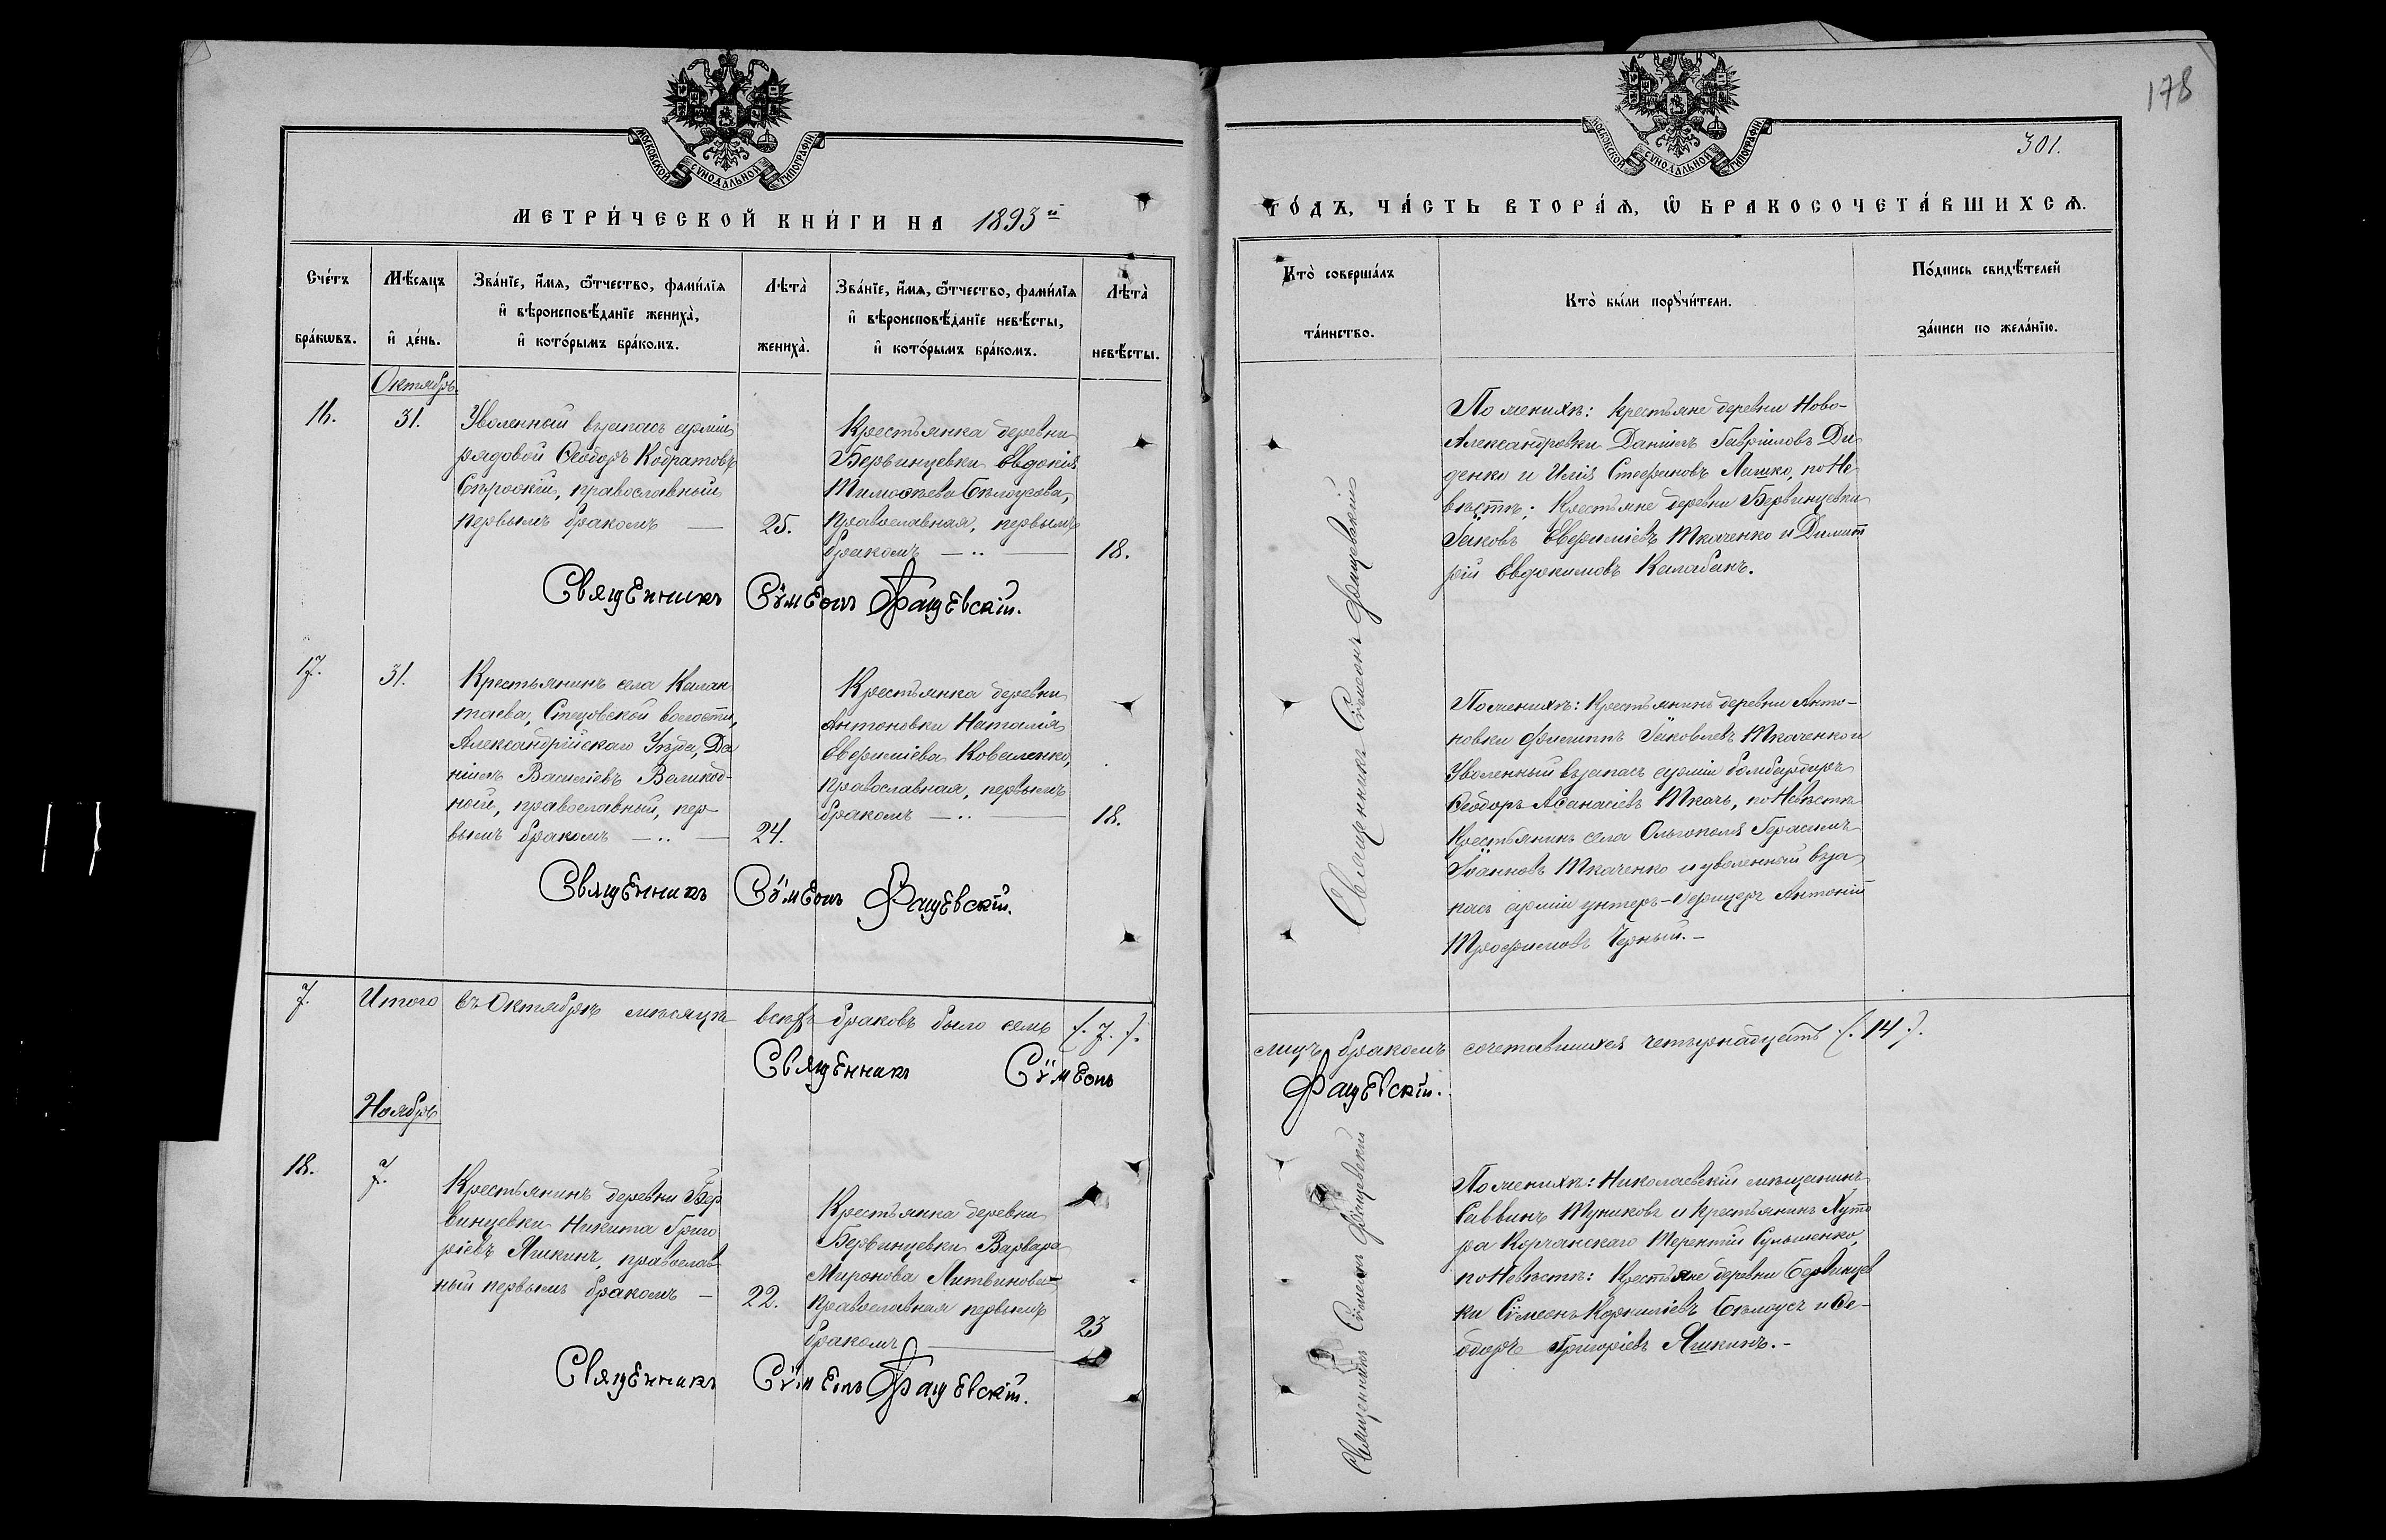 178
301.
МОСКОВСКОЙ СУНОДАЛЬНОЙ ТИПОГРАФІИ
МОСКОВСКОЙ СУНОДАЛЬНОЙ ТИПОГРАФІИ
МЕТРИ́ЧЕСКОЙ КНИ́ГИ НА 1893й
ГО́ДЪ, ЧА́СТЬ ВТОРА́Ѧ, Ѽ БРАКОСОЧЕТА́ВШИХСѦ.
Сче́тъ бра́кѡвъ.
Мѣ́сяцъ и҆ де́нь.
Зва́нїе, и҆́мѧ, ѻ҆́тчество, фами́лїѧ
и҆ вѣроисповѣ́данїе жениха̀,
и҆ кото́рымъ бра́комъ.
Лѣта̀ жениха̀.
Зва́нїе, и҆́мѧ, ѻ҆́тчество, фами́лїѧ
и҆ вѣроисповѣ́данїе невѣ́сты,
и҆ кото́рымъ бра́комъ.
Лѣта̀ невѣ́сты.
Кто̀ соверша́лъ та́инство.
Кто̀ бы́ли порꙋчи́тели.
По́дпись свидѣ́телей
за́писи по жела́нїю.
Октябрь.
16.
31.
Уволенный въ запасъ арміи
рядовой Ѳеодоръ Кодратовъ
Сѣроокій, православный
первымъ бракомъ —
25.
Крестьянка деревни
Бервинцевки Евдокія
Тимоѳеева Бѣлоусова,
православная, первымъ
бракомъ — .. —
18.
Священникъ Сѵмеонъ Фащевскій.
По женихѣ: крестьяне деревни Ново-
Александровки Даніилъ Гавріиловъ Ди
денко и Илія Стефановъ Ляшко, по не
вѣстѣ: Крестьяне деревни Бервинцевки
Іаковъ Евфиміевъ Ткаченко и Димит
рій Евдокимовъ Калабанъ.
Священникъ Сѵмеонъ Фащевскій
17.
31.
Крестьянинъ села Калан
таева, Стецовской волости,
Александрійскаго Уѣзда, Да
ніилъ Василіевъ Великод-
ный, православный, пер-
вымъ бракомъ — .. —
24.
Крестьянка деревни
Антоновки Наталія
Евфиміева Коваленко,
православная, первымъ
бракомъ — .. —
18.
Священникъ Сѵмеонъ Фащевскій.
По женихѣ: Крестьянинъ деревни Анто-
новки Филиппъ Іаковлевъ Ткаченко и
Уволенный въ запасъ арміи бомбардиръ
Ѳеодоръ Аѳанасіевъ Ткачъ, по Невѣстѣ
Крестьянинъ села Ольгополя Герасимъ
Іоанновъ Ткаченко и уволенный въ за
пасъ арміи унтеръ-офицеръ Антоній
Трофимовъ Черный. —
7.
Итого въ Октябрѣ мѣсяцѣ всѣхъ браковъ было семь (. 7 .).
лицъ бракомъ сочетавшихся четырнадцать (. 14 .).
Священникъ Сѵмеонъ
Фащевскій.
Ноябрь
18.
7.
Крестьянинъ деревни Бер
винцевки Никита Григо
ріевъ Яшкинъ, православ
ный первымъ бракомъ —
22.
Крестьянка деревни
Бервинцевки Варвара
Миронова Литвинова,
православная первымъ
бракомъ —
23
Священникъ Сѵмеонъ Фащевскій.
Священникъ Сѵмеонъ Фащевскій
По женихѣ: Николаевскій мѣщанинъ
Саввинъ Туниковъ и крестьянинъ Хуто
ра Корчанскаго Терентій Сульженко,
по Невѣстѣ: Крестьяне деревни Бервинцев
ки Сѵмеонъ Корниліевъ Бѣлоусъ и Ѳе-
одоръ Григоріевъ Яшкинъ. —